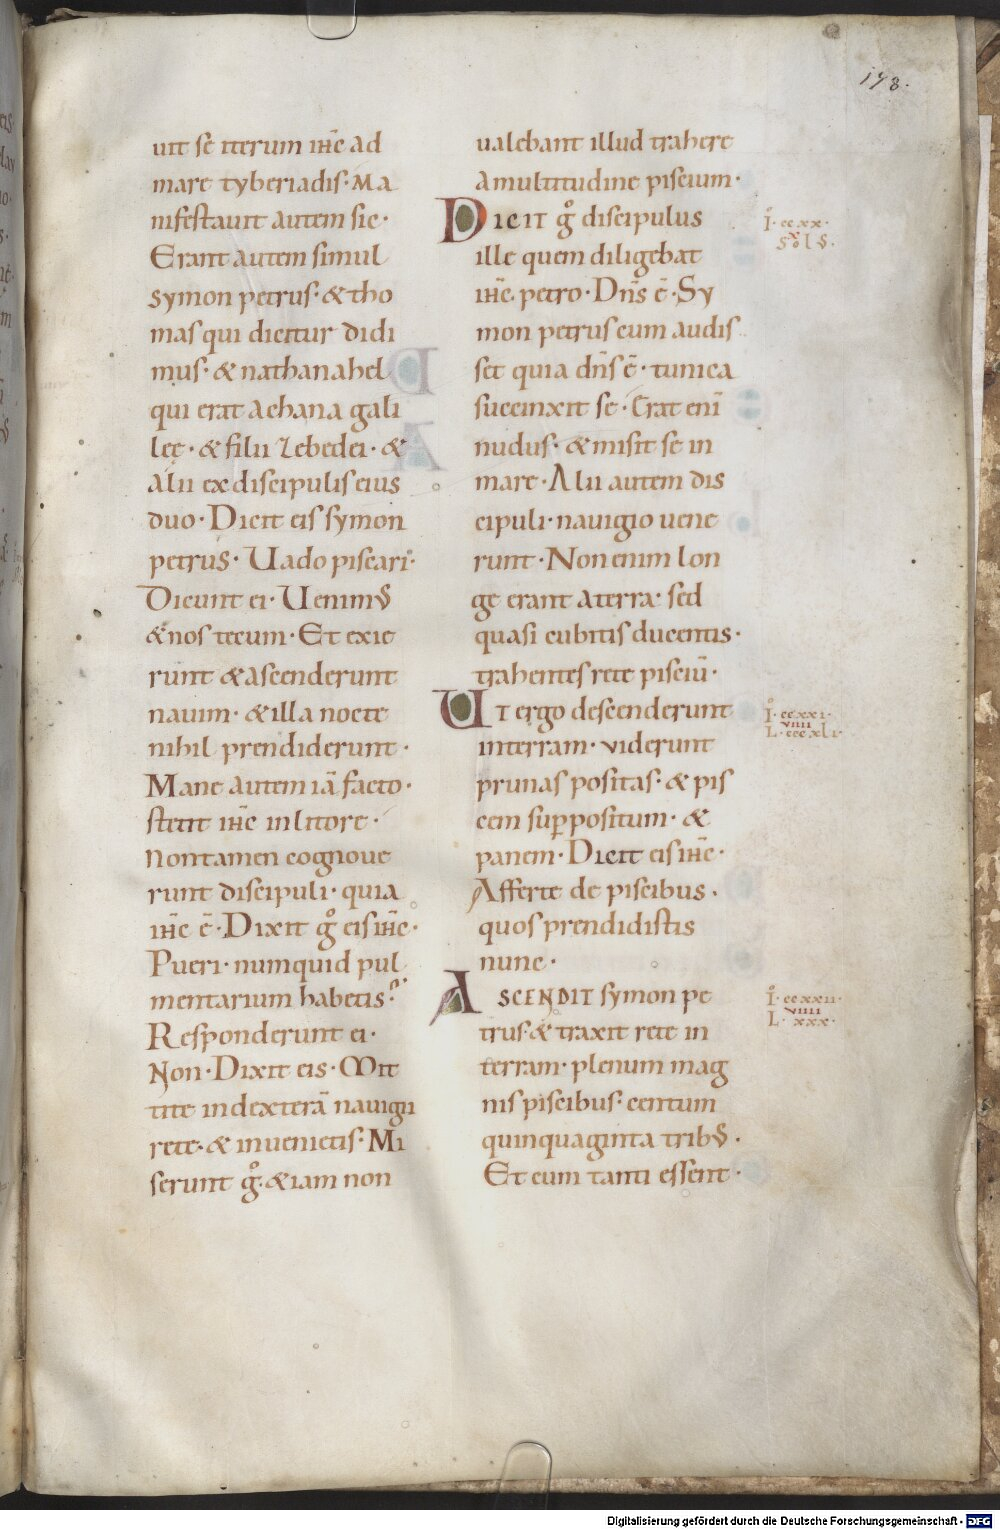 178.
uit se iterum ihc̄ ad
mare tyberiadis· Ma
nifestauit autem sic·
Erant autem simul
symon petrus· & tho
mas qui dicitur didi
mus· & nathanahel
qui erat achana gali
leę· & filii zebedei· &
alii ex discipulis eius
duo· Dicit eis symon
petrus· Uado piscari·
Dicunt ei· Uenimus
& nos tecum· Et exie
runt & ascenderunt
nauim· & illa nocte
nihil prendiderunt·
Mane autem iā facto·
stetit ihc̄ in litore·
Non tamen cognoue
runt discipuli· quia
ihc̄ ē· Dixit gͦ eis ihc̄·
Pueri· numquid pul
mentarium habetis·
Responderunt ei·
Non· Dixit eis· Mit
tite in dexterā nauigii
rete· & inuenietis· Mi
serunt gͦ· & iam non
ualebant illud trahere
a multitudine piscium·
Dicit gͦ discipulus
ille quem diligebat
ihc̄· petro· Dn̄s ē· Sy
mon petrus cum audis
set quia dn̄s ē· tunica
succinxit se· Erat enī
nudus· & misit se in
mare· Alii autem dis
cipuli· nauigio uene
runt· Non enim lon
ge erant a terra· sed
quasi cubitis ducentis·
trahentes rete pisciū·
Ut ergo descenderunt
in terram· viderunt
prunas positas· & pis
cem suppositum· &
panem· Dicit eis ihc̄·
Afferte de piscibus·
quos prendidistis
nunc·
Ascendit symon pe
trus· & traxit rete in
terram· plenum mag
nis piscibus· centum
quinquaginta tribus·
Et cum tanti essent·
Iͦ· ccxx·
x
Solus·
Iͦ· ccxxi·
viiii
L· cccxli·
Iͦ· ccxxii·
viiii
L· xxx·
Digitalisierung gefördert durch die Deutsche Forschungsgemeinschaft - DFG